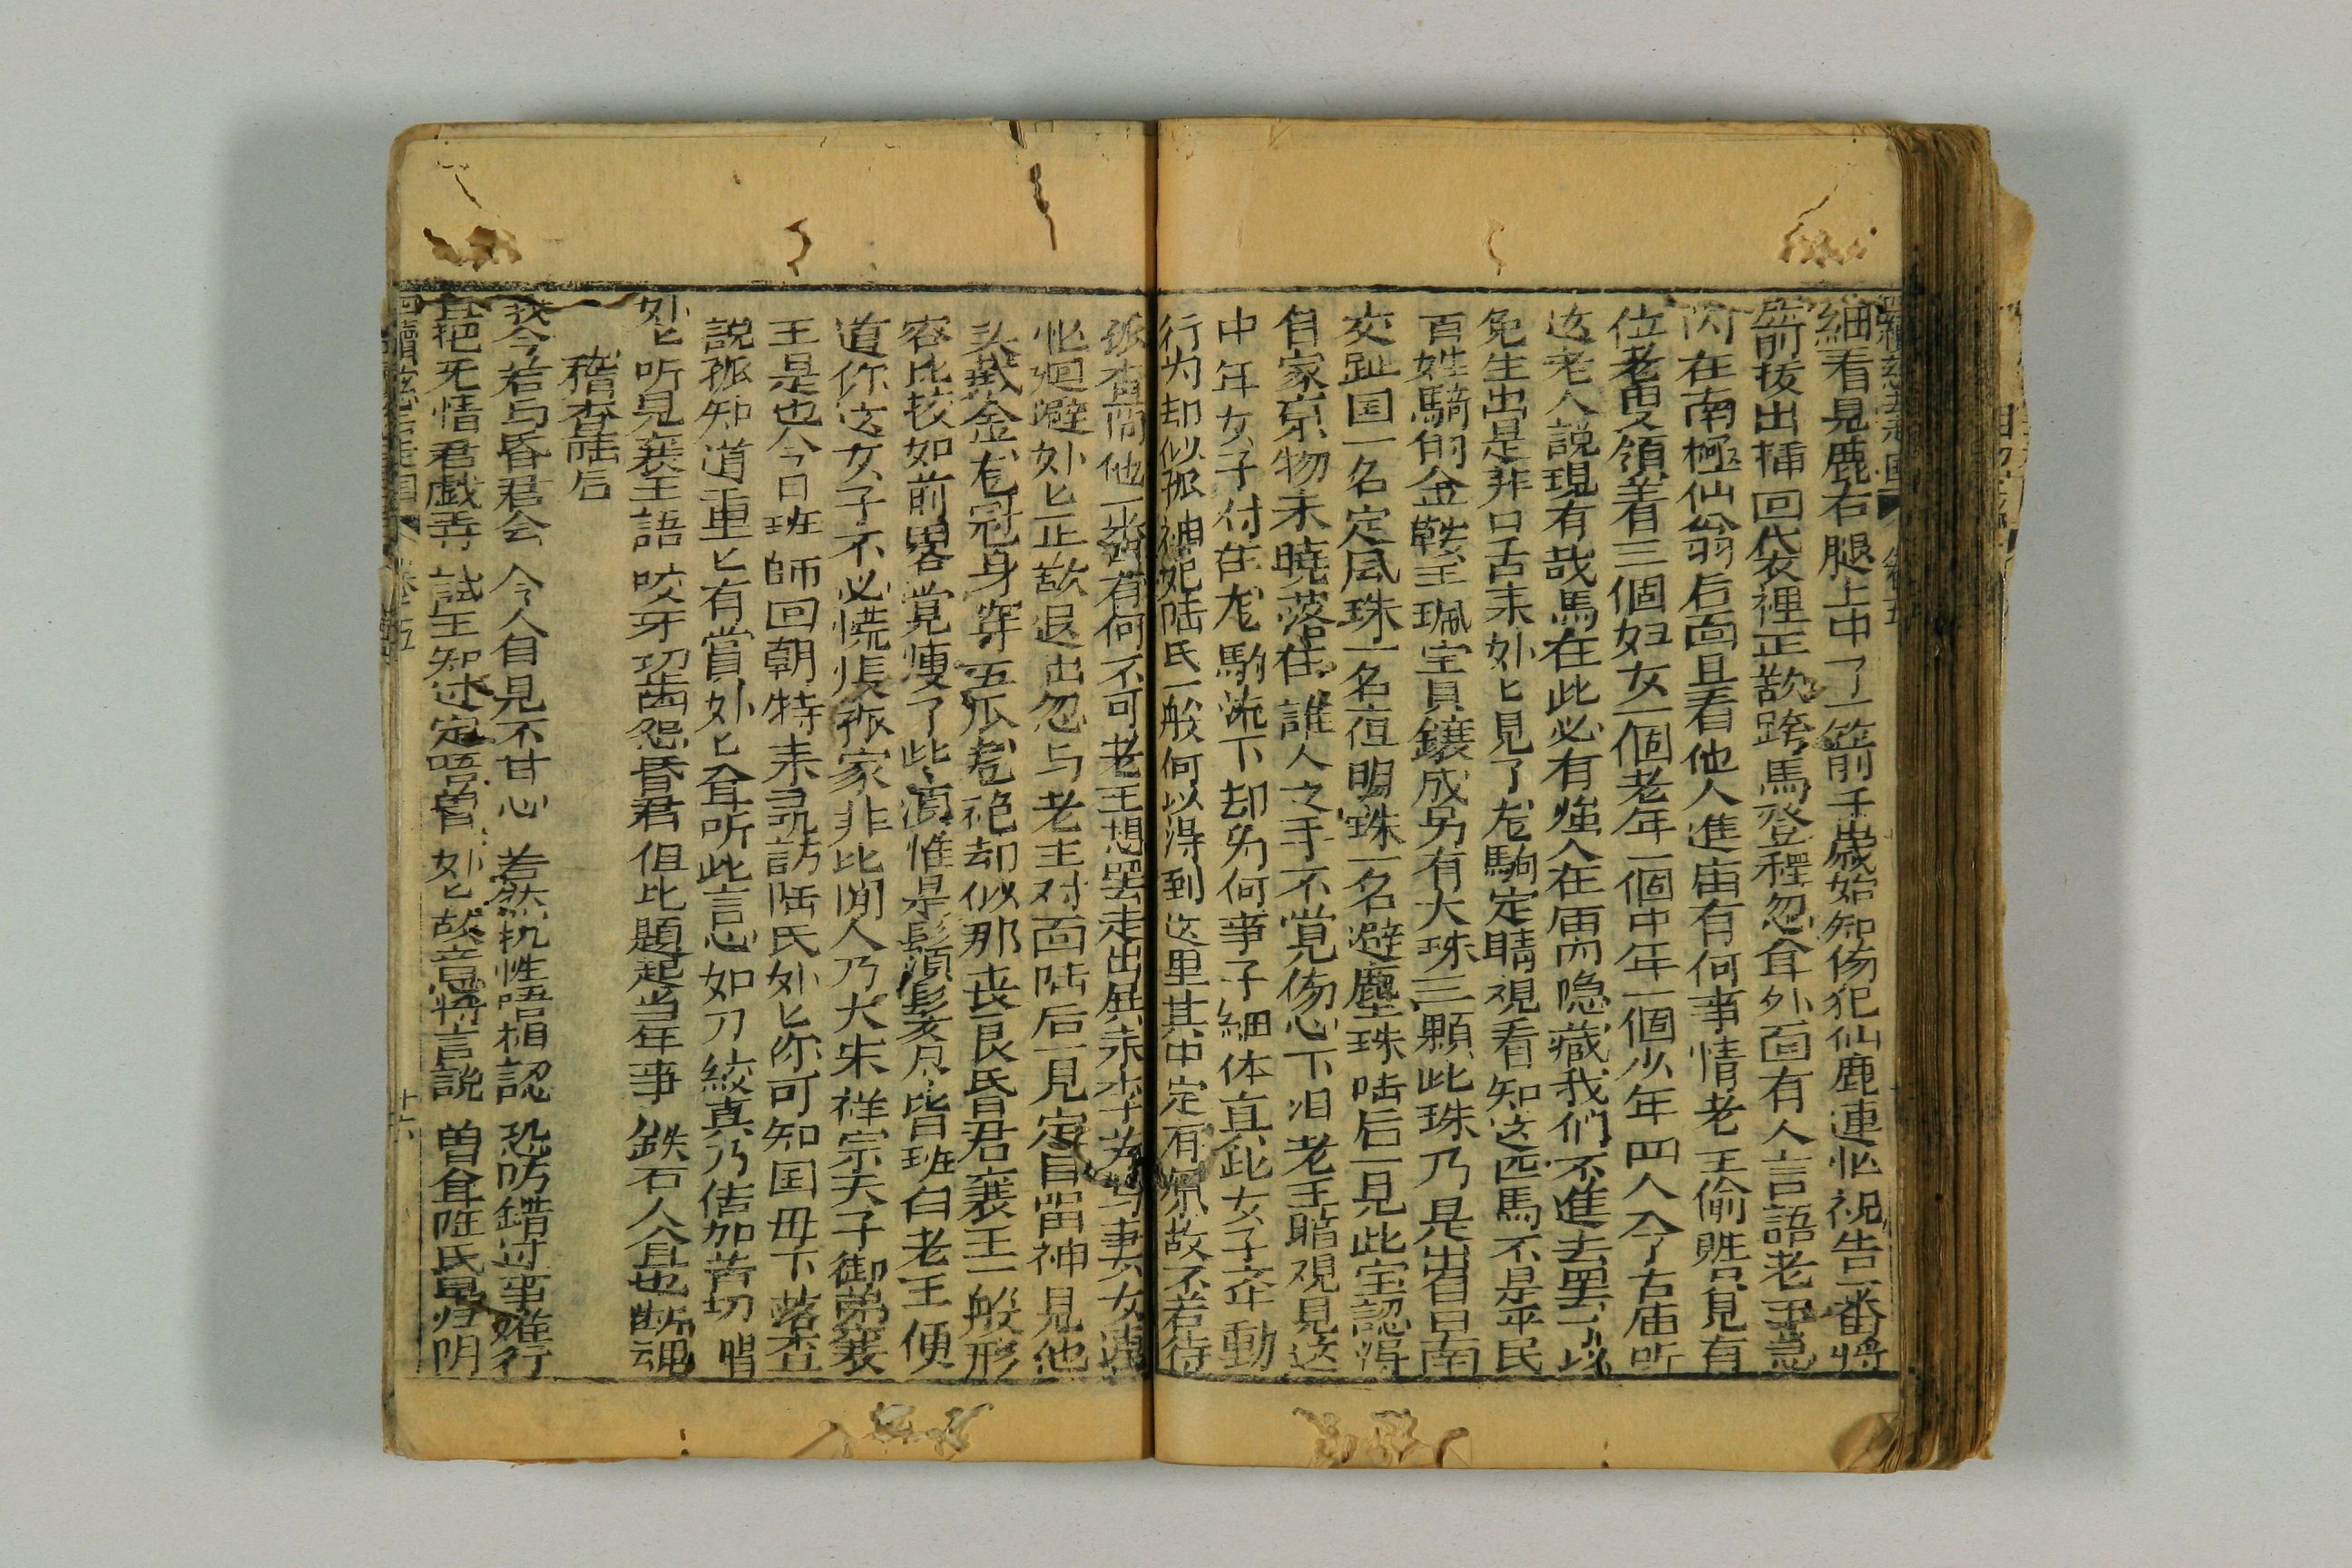 細看見鹿右腿上中了一箭千歲始知傷犯仙鹿連忙祝告一番將
箭拔出插回袋裡正欲跨馬登程忽耳外面有人言語老王急
閃在南極仙翁后面且看他人進庙有何事情老王偷𧵳只見有
位老叟領着三個妇女一個老年一個中年一個少年四人今古庙听
这老人說現有战馬在此必有強人在庙隐藏我们不進去罢了以
免生出是非口舌来妙匕見了龙駒定睛視看知这匹馬不是平民
百姓騎的金鞍玉珮宝貝鑲成另有大珠三顆此珠乃是出自日南
交趾国一名定风珠一名夜明珠一名避塵珠陆后一見此宝認得
自家京物未曉落在誰人之手不覚傷心下泪老王暗覌見这
中年女子付在龙駒流下却为何事子細体直此女子㐧動
行为却似孤神妃陆氏一般何以得到这里其中定有原故不若待
孤查问他一番有何不可老王想罢走出展来李为与妻女連
忙廻避妙匕正欲退出忽与老主对面陆后一見定目留神見他
头戴金龙冠身穿五爪龙袍却似那丧良昏君襄王一般形
容比较如前畧覚瘦了此湏惟是鬍湏髮𩯭皆班白老王便
道你这女子不必慌張孤家非比閒人乃大宋祥宗天子御弟襄
王是也今日班師回朝特来尋訪陆氏妙匕你可知国母下落查
說孤知道重匕有賞妙匕耳听此言心如刀絞真乃倍加苦切 唱
妙匕听見襄王語 咬牙切齒怨昏君 但此題起当年事 鉄石人耳也断魂
稽查陆后
我今若与昏君会 令人自見不甘心 若然执性唔相認 恐防錯过事难行
且把无情君戲弄 試王知过定唔曽 妙匕故意將言說 曽耳陆氏早归阴
四續慈云走国 卷五 十六